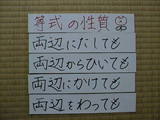 等式の性質
両辺にたしても
両辺からひいても
両辺にかけても
両辺をわっても